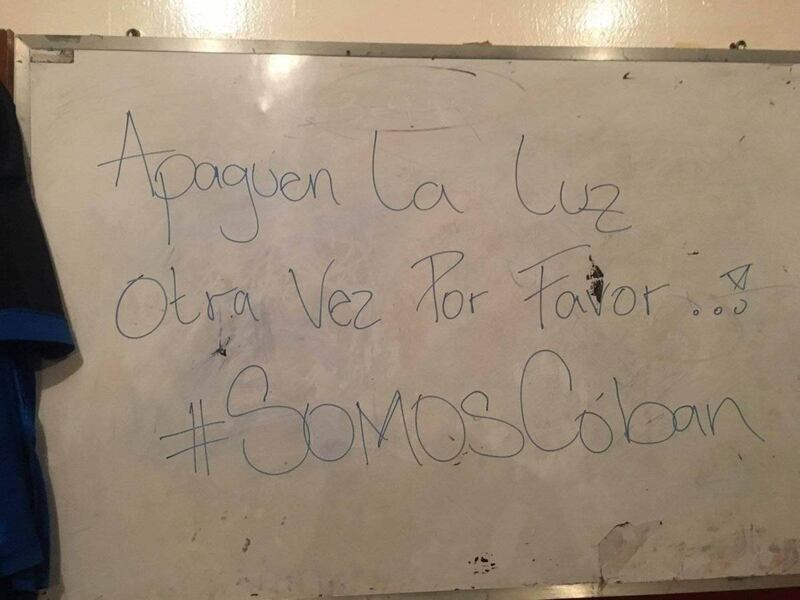 Apaguen La Luz
Otra Vez Por Favor...!
#SomosCóban